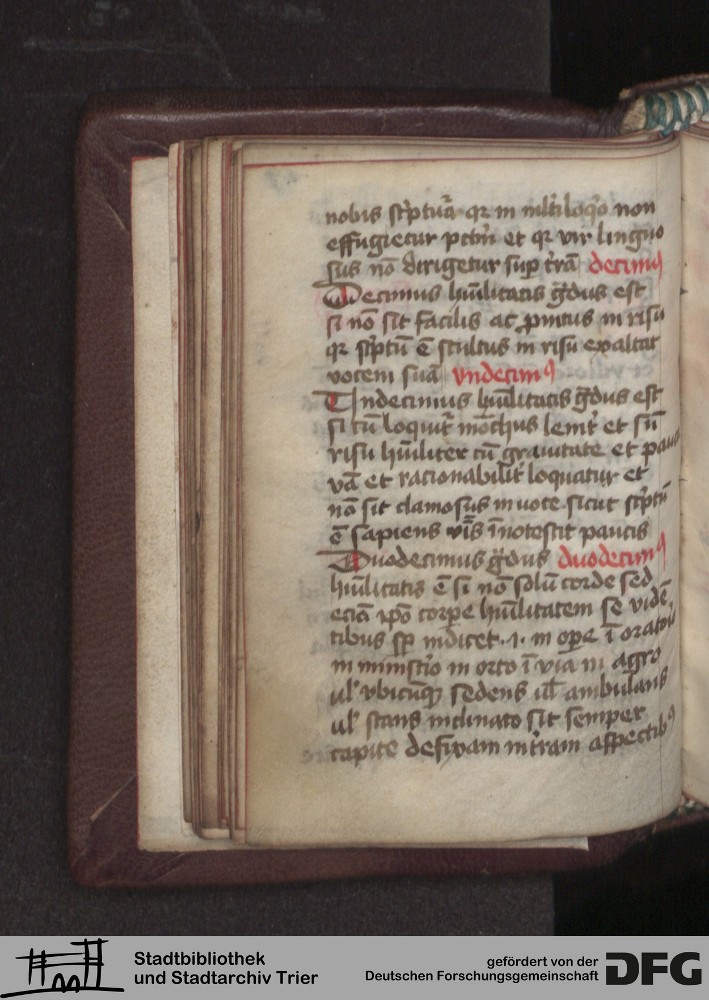 nobis sc̄ptura qr in ml̄tiloq̊o non
effugietur pctm̄ et qr vir linguo
sus nō dirigetur sup t̄rā decimꝰ
Decimus hūilitatis g̊dus est
si nō sit facilis ac ꝓmtus in risu
qr sc̄ptū ē stultus in risu exaltat
vocem suā vndecimꝰ
Undecimus hūilitatis g̊dus est
si cū loquit̄ monchus lenit̄ et sn̄
risu hūiliter cū grauitate et pau
va et rationabilit̄ loquatur et
nō sit clamosus in uoce sicut sc̄ptū
ē sapiens v̄bis īnotescit paucis
Duodecimus g̊dus duodecimꝰ
hūilitatis ē si nō solū corde sed
eciā ip̄o corpe hūilitatem se vidē
tibus sp̄ indicet .i. in oꝑe ī oratoio
in minist̄io in orto ī via in agro
ul̓ vbicūqꝫ sedens ul̓ ambulans
ul̓ stans inclinato sit semper
capite defixam in t̄ram aspectibꝰ
Stadtbibliothek
und Stadtarchiv Trier
gefördert von der
Deutschen Forschungsgemeinschaft DFG